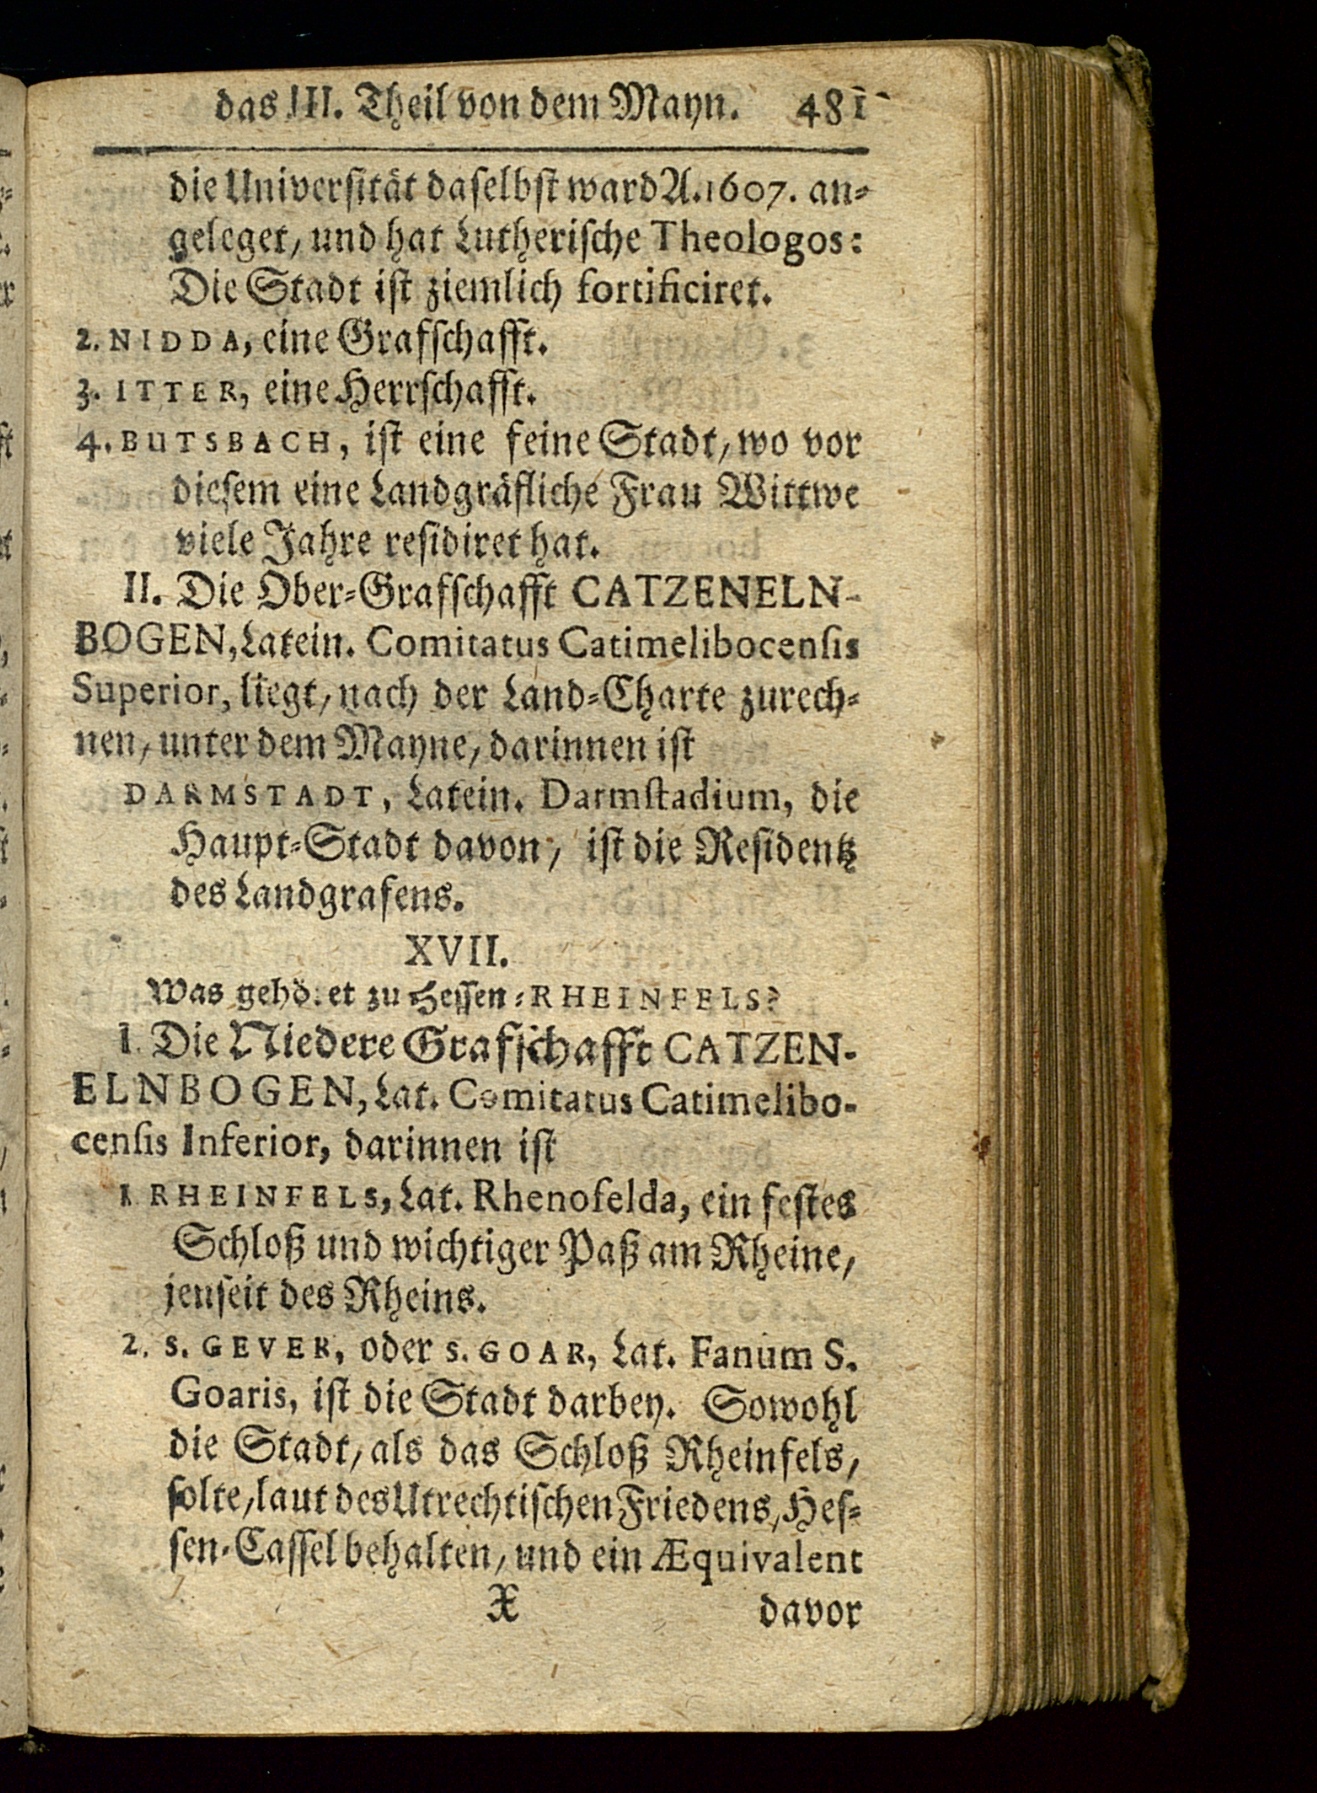 das III. Theil von dem Mayn. 481
die Universität daselbst ward A. 1607. an-
geleget, und hat Lutherische Theologos:
Die Stadt ist ziemlich fortificiret.
2. NIDDA, eine Grafschafft.
3. ITTER, eine Herrschafft.
4. BUTSBACH, ist eine feine Stadt, wo vor
diesem eine Landgräfliche Frau Wittwe
viele Jahre residiret hat.
II. Die Ober-Grafschafft CATZENELN-
BOGEN, Latein. Comitatus Catimelibocensis
Superior, liegt, nach der Land-Charte zurech-
nen, unter dem Mayne, darinnen ist
DARMSTADT, Latein. Darmstadium, die
Haupt-Stadt davon, ist die Residentz
des Landgrafens.
XVII.
Was gehöret zu Hessen-RHEINFELS?
I. Die Niedere Grafschafft CATZEN-
ELNBOGEN, Lat. Comitatus Catimelibo-
censis Inferior, darinnen ist
1. RHEINFELS, Lat. Rhenofelda, ein festes
Schloß und wichtiger Paß am Rheine,
jenseit des Rheins.
2. S. GEVER, oder S. GOAR, Lat. Fanum S.
Goaris, ist die Stadt darbey. Sowohl
die Stadt, als das Schloß Rheinfels,
solte, laut des Utrechtischen Friedens, Hes-
sen-Cassel behalten, und ein Æquivalent
X davor